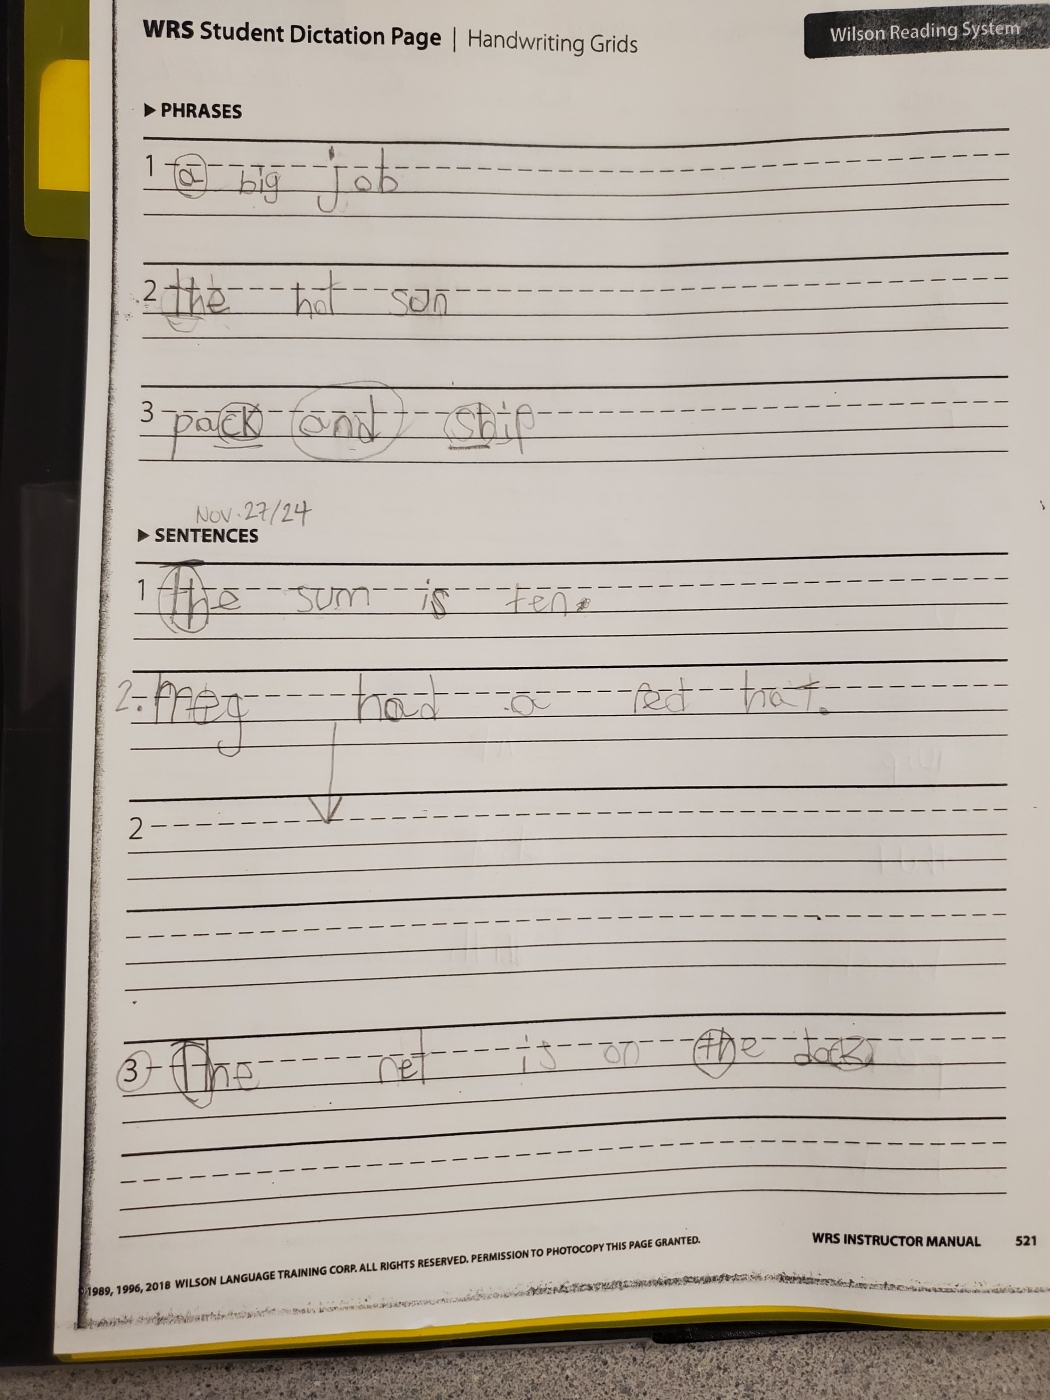 WRS Student Dictation Page | Handwriting Grids
Wilson Reading System
▶ PHRASES
1 a big job
2 the hot sun
3 pack and ship
Nov. 27/24
▶ SENTENCES
1 The sum is ten.
2. Meg had a red hat.
2
3 The net is on the dock.
1989, 1996, 2018 WILSON LANGUAGE TRAINING CORP. ALL RIGHTS RESERVED. PERMISSION TO PHOTOCOPY THIS PAGE GRANTED.
WRS INSTRUCTOR MANUAL 521